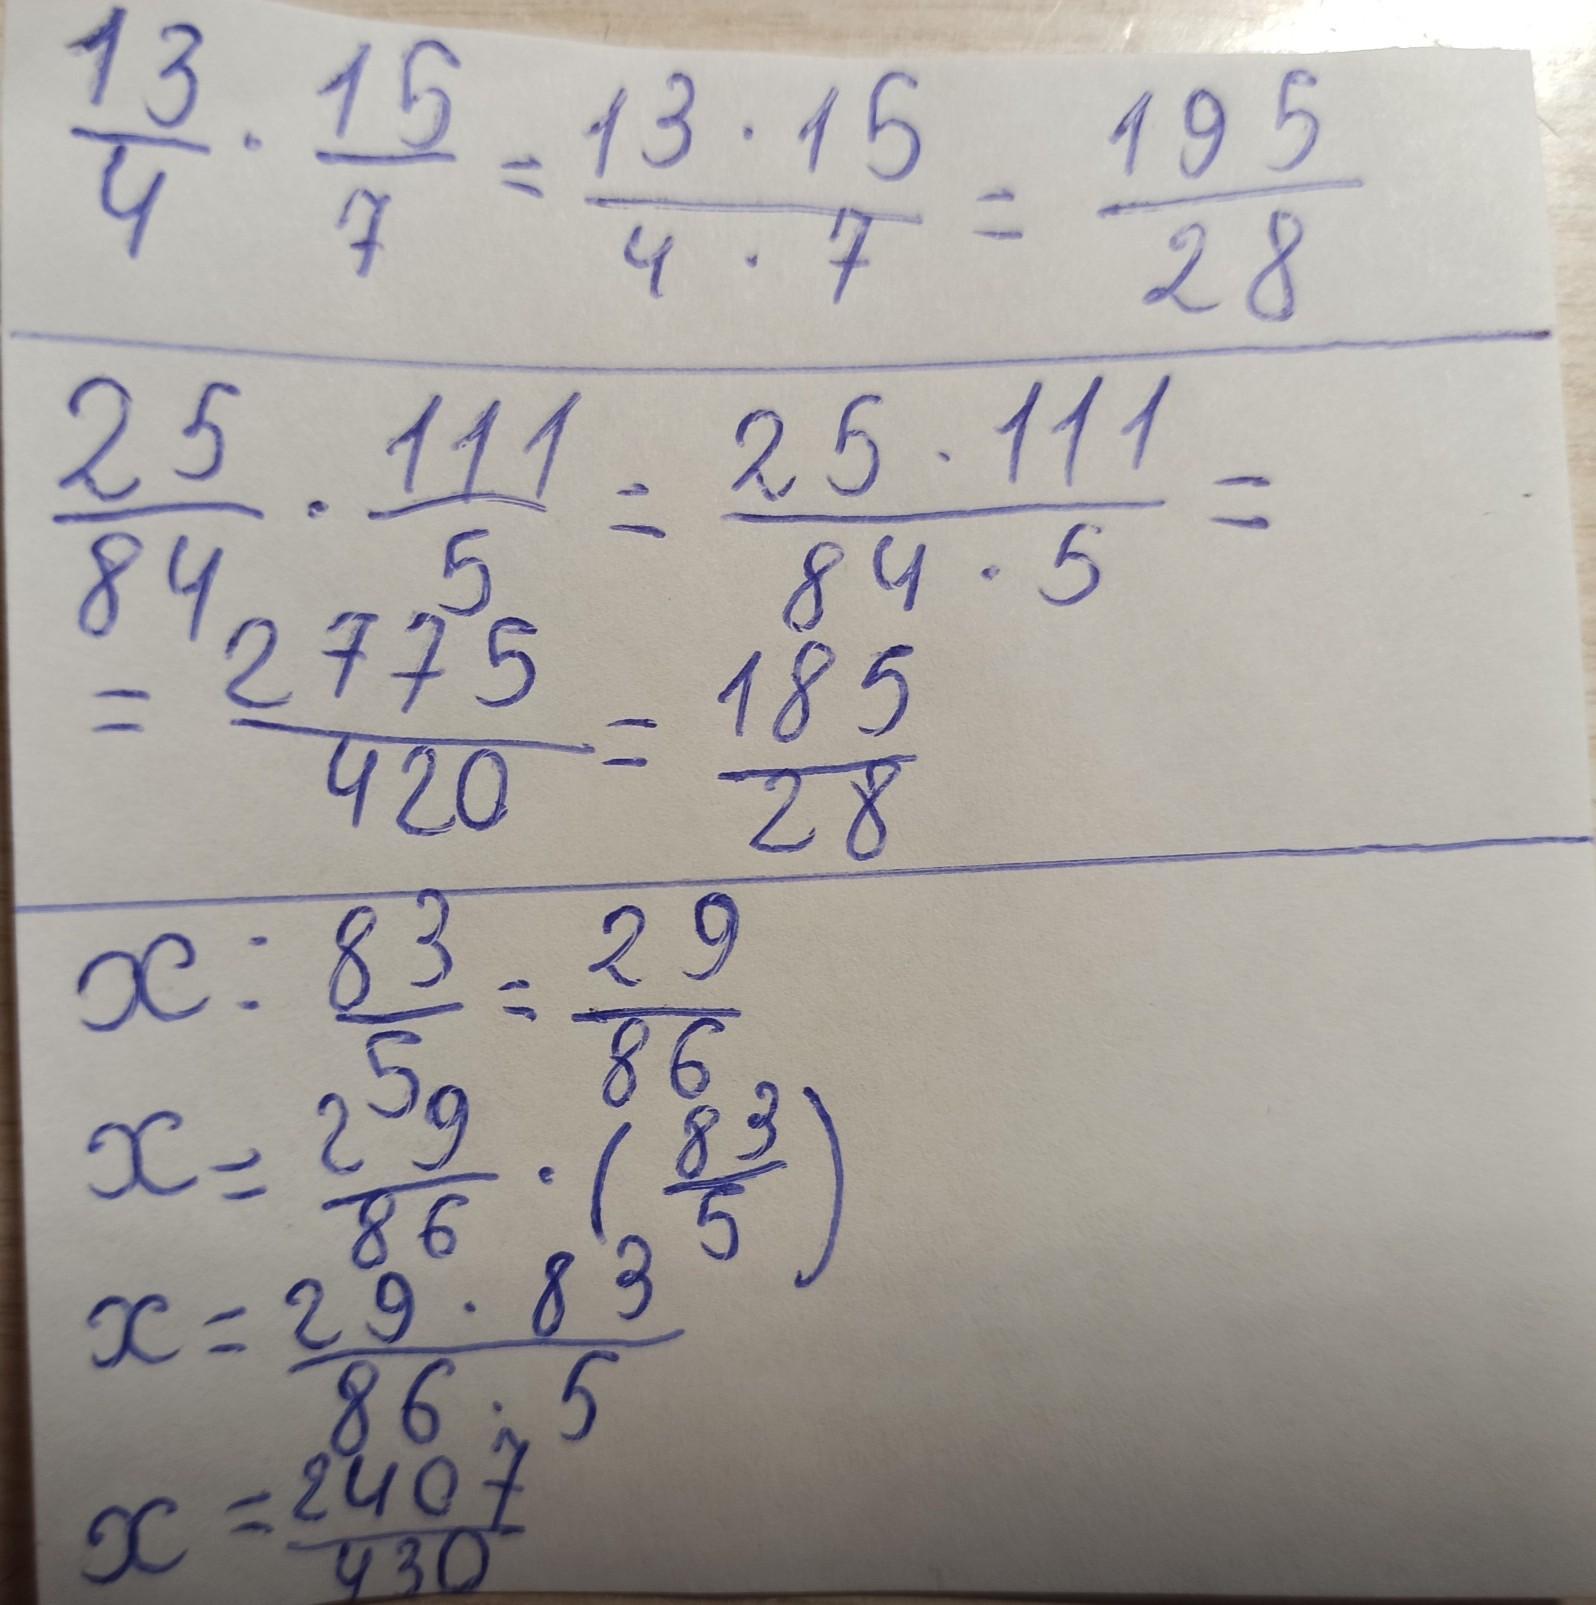 13/4 · 15/7 = 13 · 15/4 · 7 = 195/28
25/84 · 111/5 = 25 · 111/84 · 5 =
= 2775/420 = 185/28
x : 83/5 = 29/86
x = 29/86 · (83/5)
x = 29 · 83/86 · 5
x = 2407/430